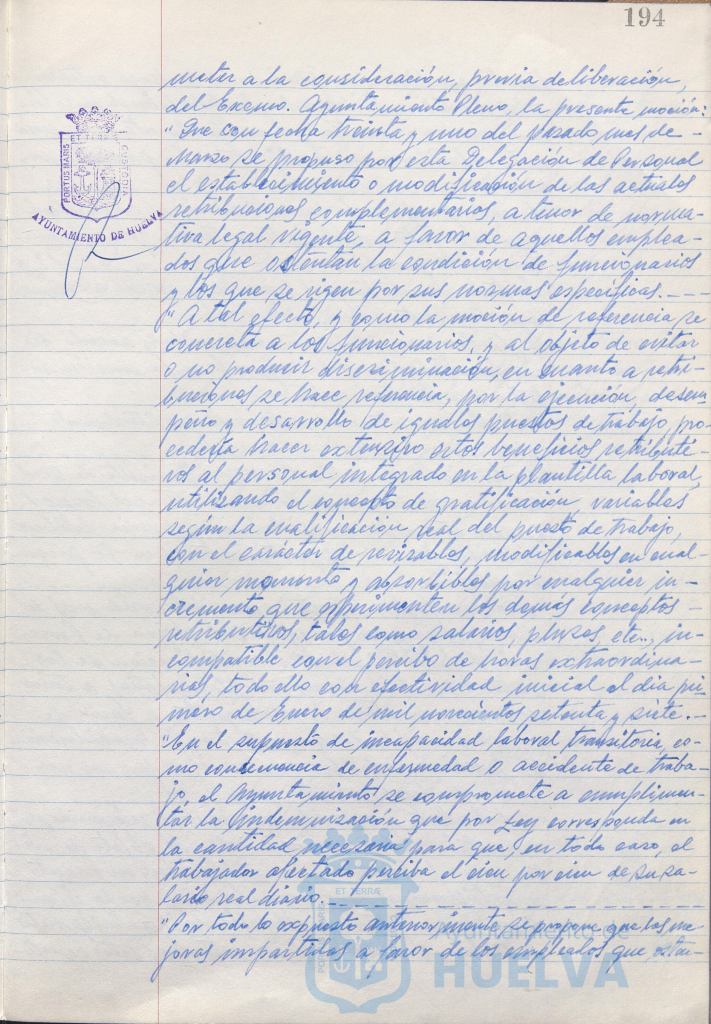 194
meter a la consideración, previa deliberación,
del Excmo. Ayuntamiento Pleno, la presente moción:
"Que con fecha treinta y uno del pasado mes de -
Marzo se propuso por esta Delegación de Personal
el establecimiento o modificación de las actuales
retribuciones complementarias, a tenor de norma-
tiva legal vigente, a favor de aquellos emplea-
dos que ostentan la condición de funcionarios
y los que se rigen por sus normas específicas. - - -
"A tal efecto, y como la moción de referencia se
concreta a los funcionarios, y al objeto de evitar
o no producir discriminación, en cuanto a retri-
buciones se hace referencia, por la ejecución, desem-
peño y desarrollo de iguales puestos de trabajo, pro-
cedería hacer extensivo estos beneficios retributi-
vos al personal integrado en la plantilla laboral,
utilizando el concepto de gratificación, variables
según la cualificación real del puesto de trabajo,
con el carácter de revisables, modificables en cual-
quier momento y absorbibles por cualquier in-
cremento que experimenten los demás conceptos -
retributivos, tales como salarios, pluses, etc., in-
compatible con el percibo de horas extraordina-
rias, todo ello con efectividad inicial el día pri-
mero de Enero de mil novecientos setenta y siete. -
"En el supuesto de incapacidad laboral transitoria, co-
mo consecuencia de enfermedad o accidente de traba-
jo, el Ayuntamiento se compromete a cumplimen-
tar la indemnización que por Ley corresponda en
la cantidad necesaria para que, en todo caso, el
trabajador afectado perciba el cien por cien de su sa-
lario real diario. - - - - - - - - - -
"Por todo lo expuesto anteriormente, se propone que las me-
joras impartidas a favor de los empleados que osten-
PORTUS MARIS
ET TERRAE
CUSTODIA
AYUNTAMIENTO DE HUELVA
ET TERRAE
Ayuntamiento de
HUELVA